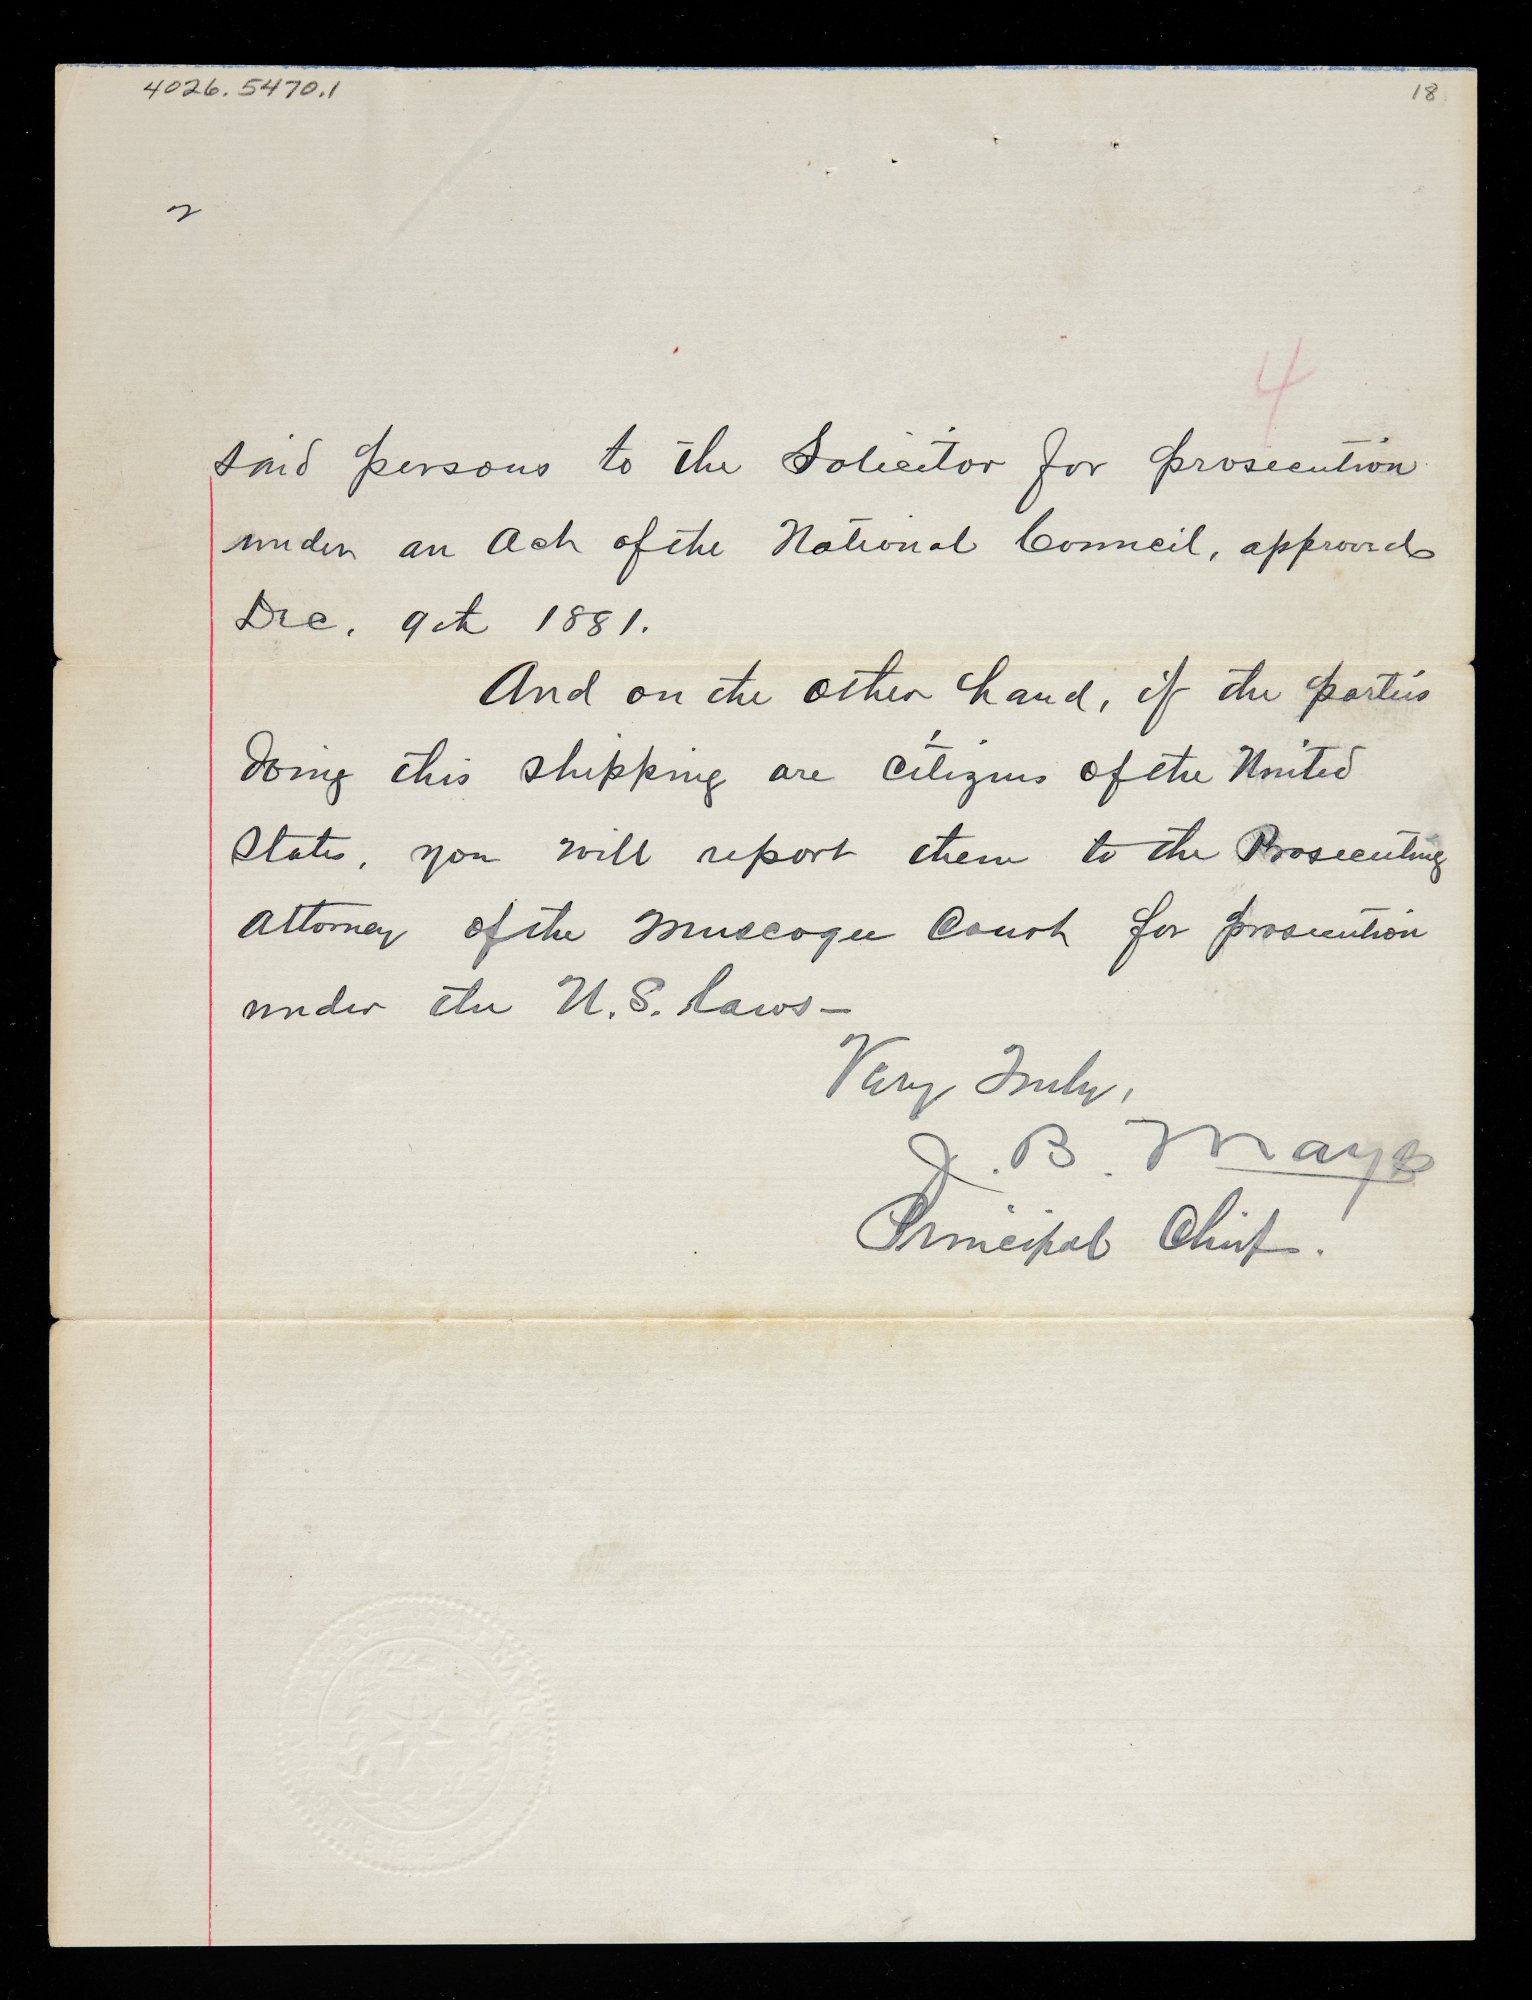 4026.5470.1
18
2
4
said persons to the Solicitor for prosecution
under an Act of the National Council, approved
Dec. 9th 1881.
And on the other hand, if the parties
doing this shipping are citizens of the United
States, you will report them to the Prosecuting
Attorney of the Muscogee Court for prosecution
under the U.S. Laws—
Very Truly,
J. B. Mayes
Principal Chief.